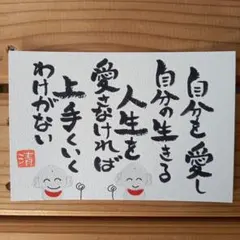 自分を愛し
自分の生きる
人生を
愛さなければ
上手くいく
わけがない
清